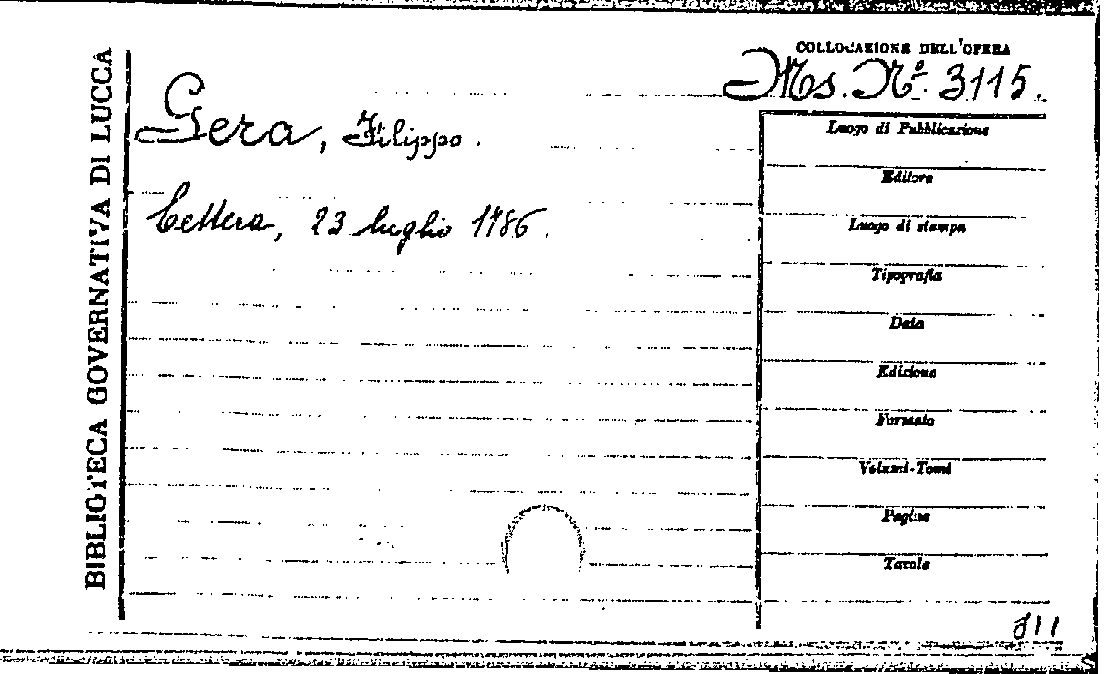 BIBLIOTECA GOVERNATIVA DI LUCCA
COLLOCAZIONE DELL'OPERA
Ms. Nº. 3115.
Gera, Filippo.
Lettera, 23 luglio 1786.
Luogo di Pubblicazione
Editore
Luogo di stampa
Tipografia
Data
Edizione
Formato
Volumi-Tomi
Pagine
Tavole